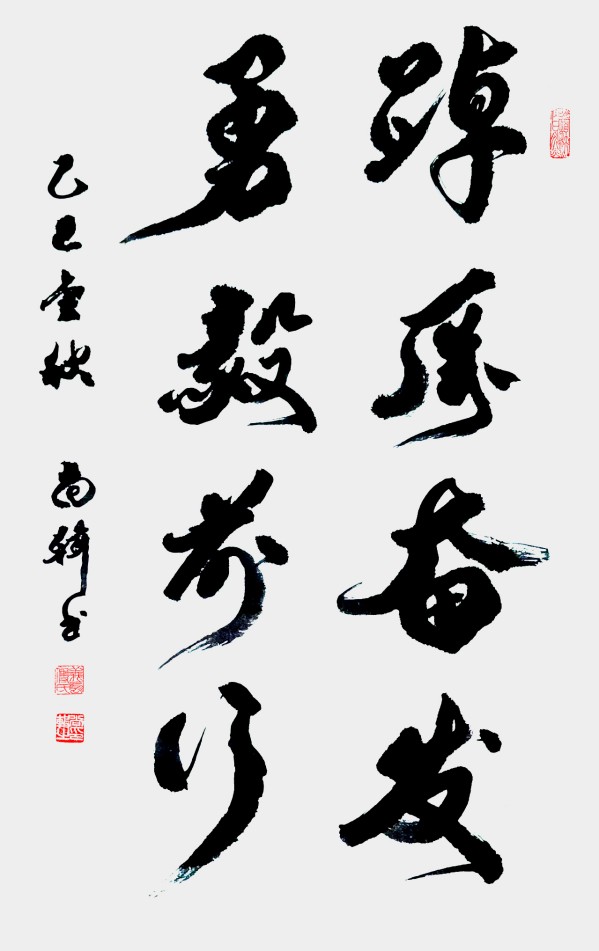 踔厉奋发
勇毅前行
乙巳金秋 尚 书